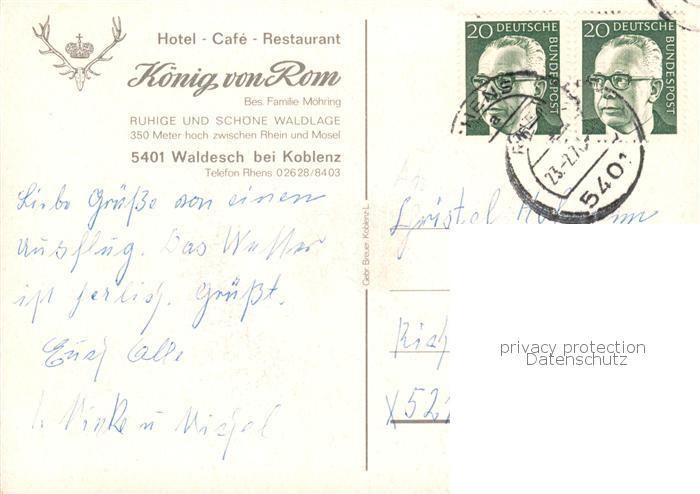 Hotel - Café - Restaurant
König von Rom
Bes. Familie Möhring
RUHIGE UND SCHÖNE WALDLAGE
350 Meter hoch zwischen Rhein und Mosel
5401 Waldesch bei Koblenz
Telefon Rhens 02628/8403
Liebe Grüße von einem
Ausflug. Das Wetter
ist herlich. Grüßt.
Euch Alle
u Michael
Gebr. Breuer, Koblenz-L.
20 DEUTSCHE BUNDESPOST
20 DEUTSCHE BUNDESPOST
23.-2.7
5401
An
Christel
X52
privacy protection
Datenschutz